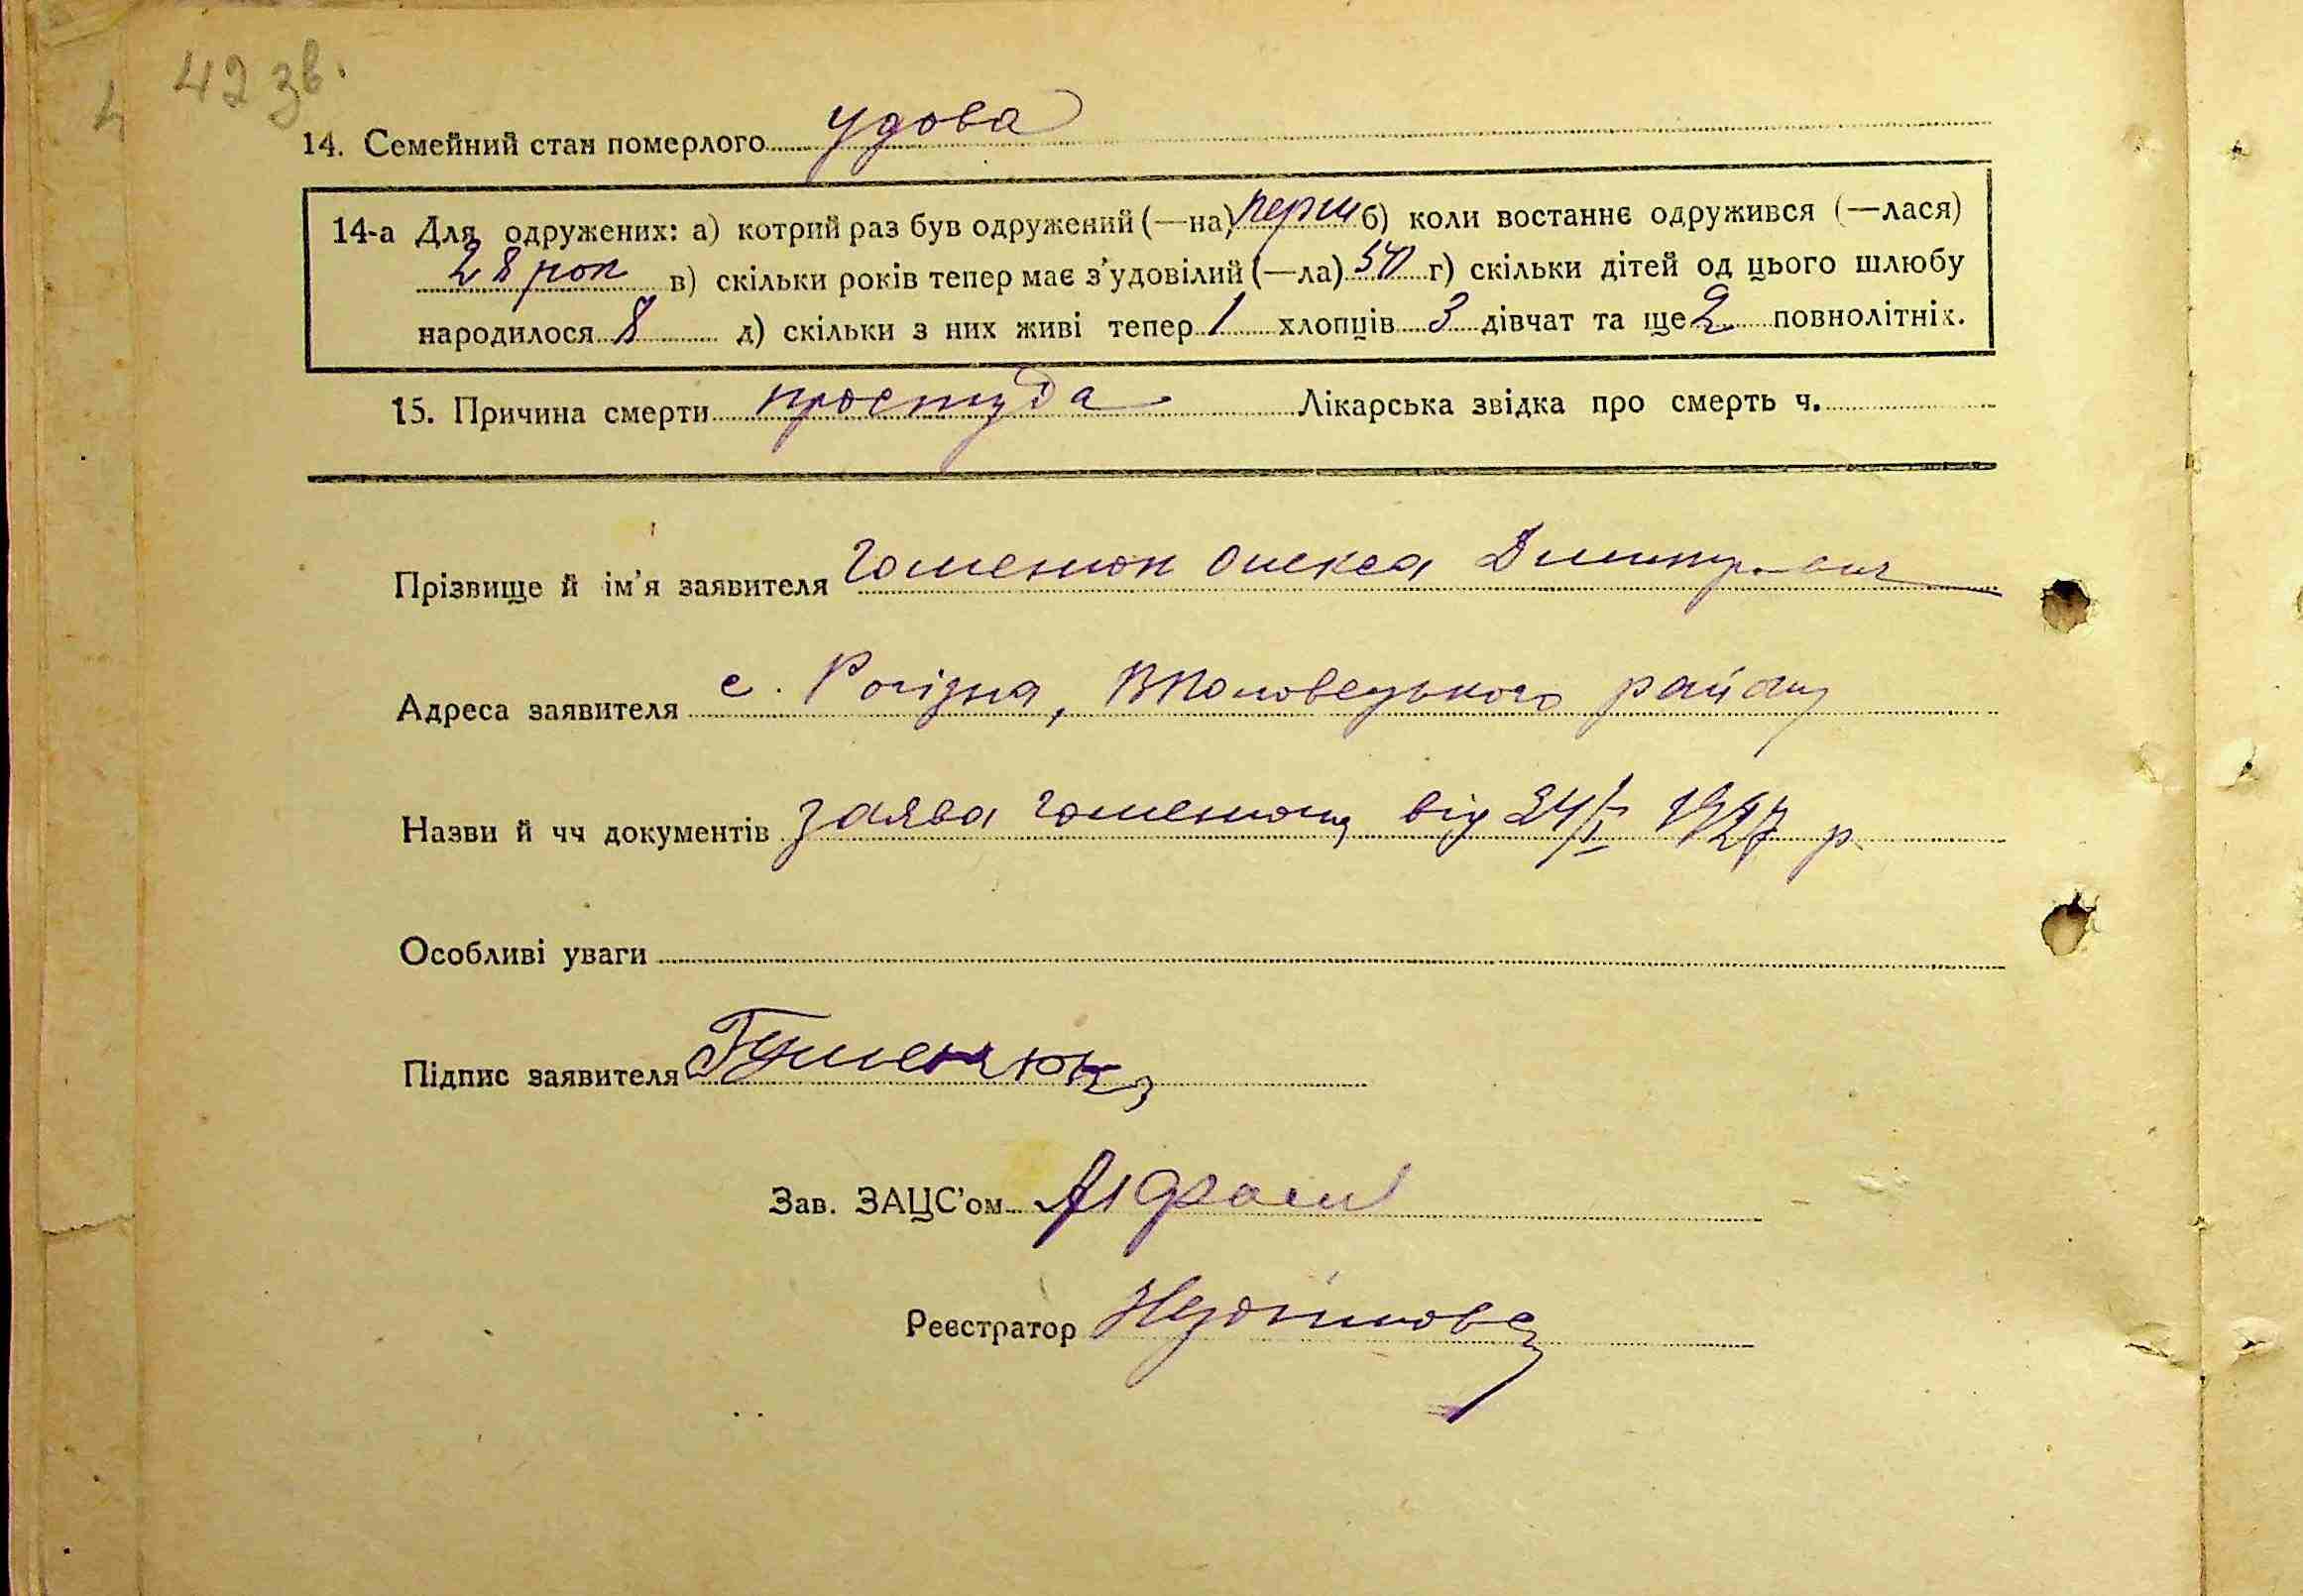 42 зв.
14. Семейний стан померлого удова
14-а Для одружених: а) котрий раз був одружений (—на) перш б) коли востаннє одружився (—лася)
28 рок в) скільки років тепер має з'удовілий (—ла) г) скільки дітей од цього шлюбу
народилося 8 д) скільки з них живі тепер 1 хлопців 3 дівчат та ще 2 повнолітніх.
15. Причина смерти простуда Лікарська звідка про смерть ч.
Прізвище й ім'я заявителя Гоменюк Олекса
Адреса заявителя с. Рогізна, району
Назви й чч документів заява Гоменюка від 24/I 1927 р
Особливі уваги
Підпис заявителя Гуменюк
Зав. ЗАЦС'ом
Реєстратор